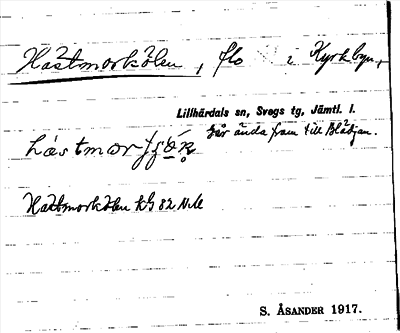 Hästmorkölen, flo i Kyrkbyn,
Lillhärdals sn, Svegs tg, Jämtl. l.
går ända fram till Blåtjan.
Hästmorkölen kG 82 N.M
S. ÅSANDER 1917.